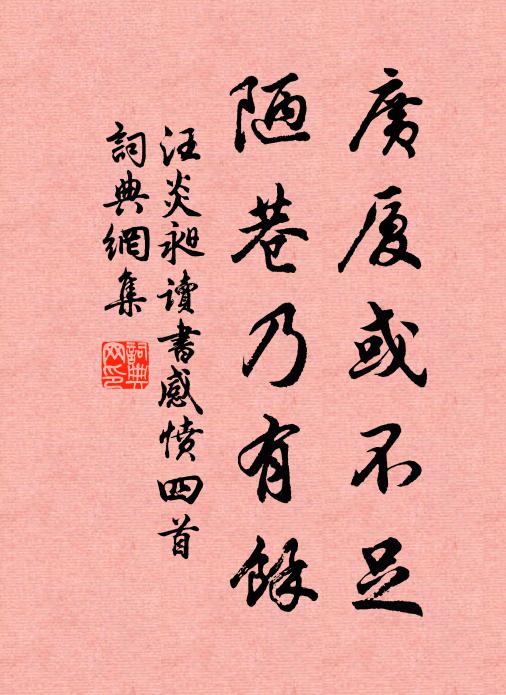 廣厦或不足
陋巷乃有餘
汪炎昶讀書感憤四首
詞典網集
詞典网印